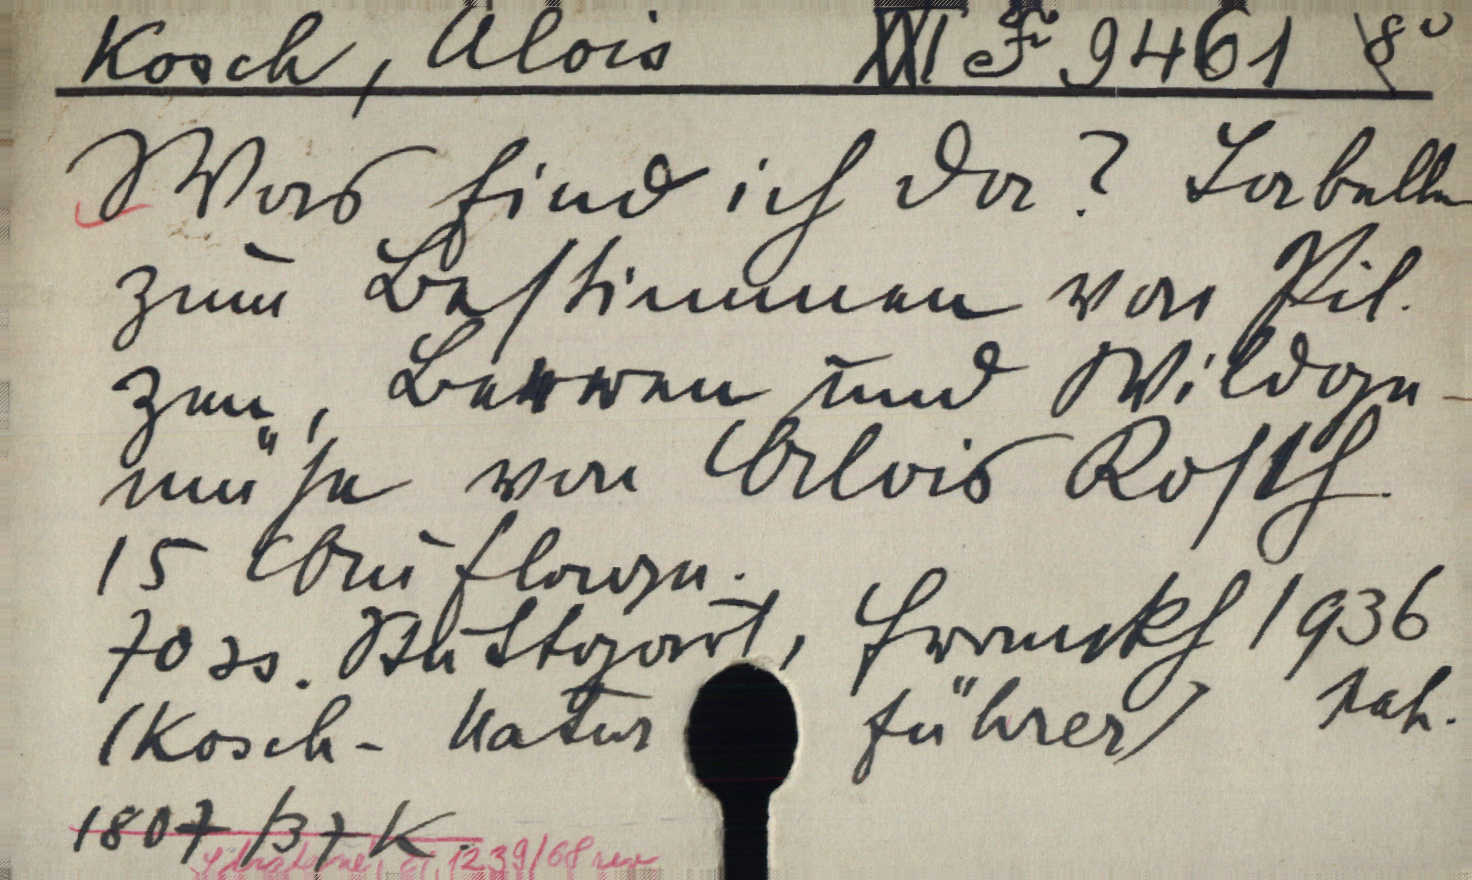 Kosch, Alois XXI F 9461 8°
Was find ich da? Tabellen
zum Bestimmen von Pil-
zen, Beeren und Wildge-
müse von Alois Kosch.
15 Auflage.
70 SS. Stuttgart, Franckh 1936
(Kosch- Naturführer) kah.
1807/37 K.
1239/68